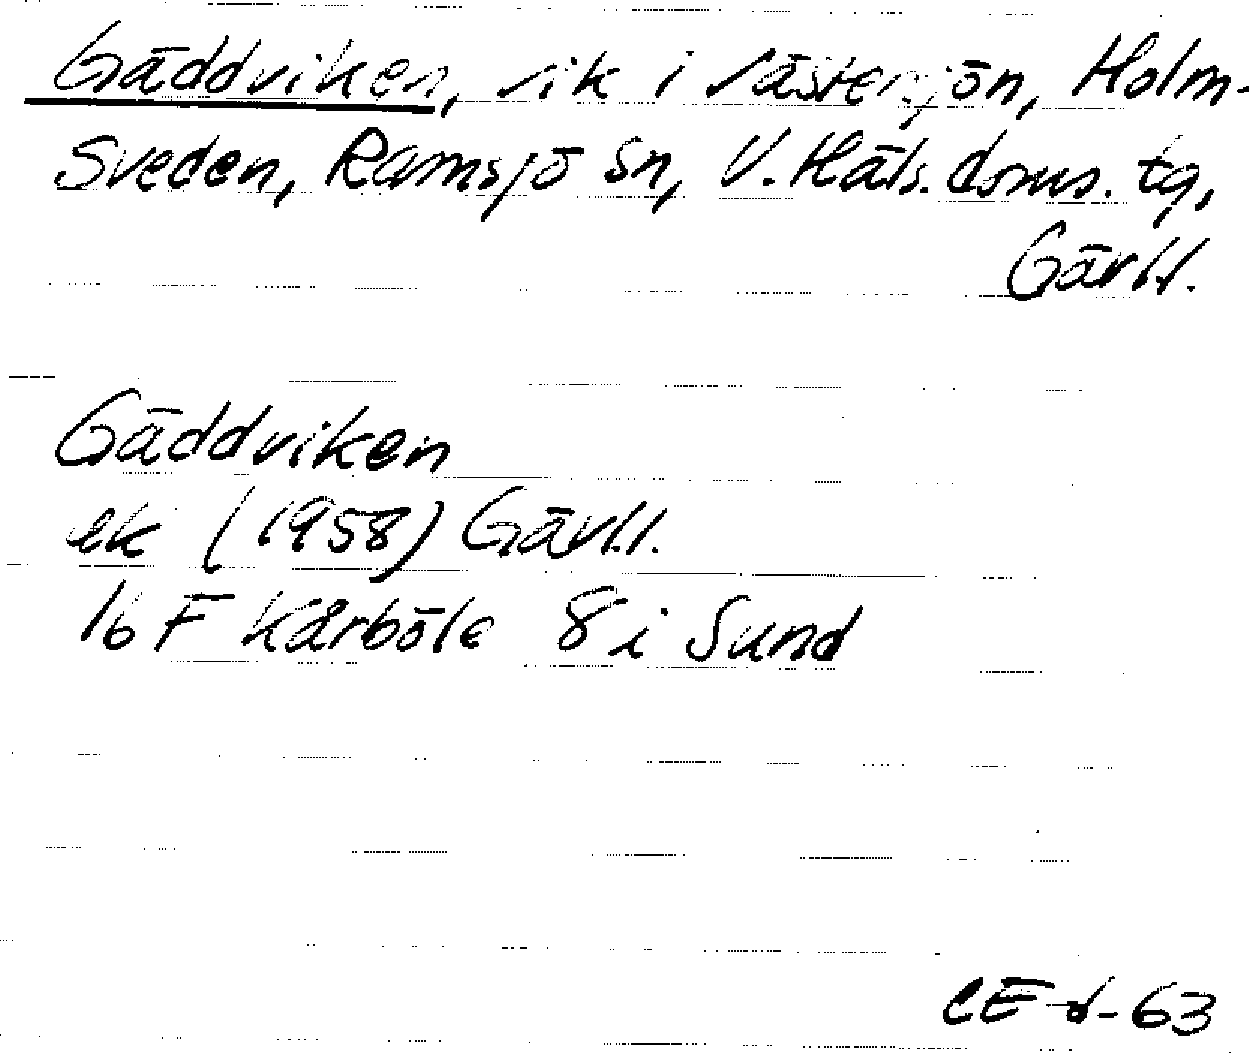 Gäddviken, vik i Västersjön, Holm-
Sveden, Ramsjö sn, V. Häls. doms. tg,
Gävl.l.
Gäddviken
ek (1958) Gävl.l.
16 F Kårböle 8 i Sund
CE-d-63